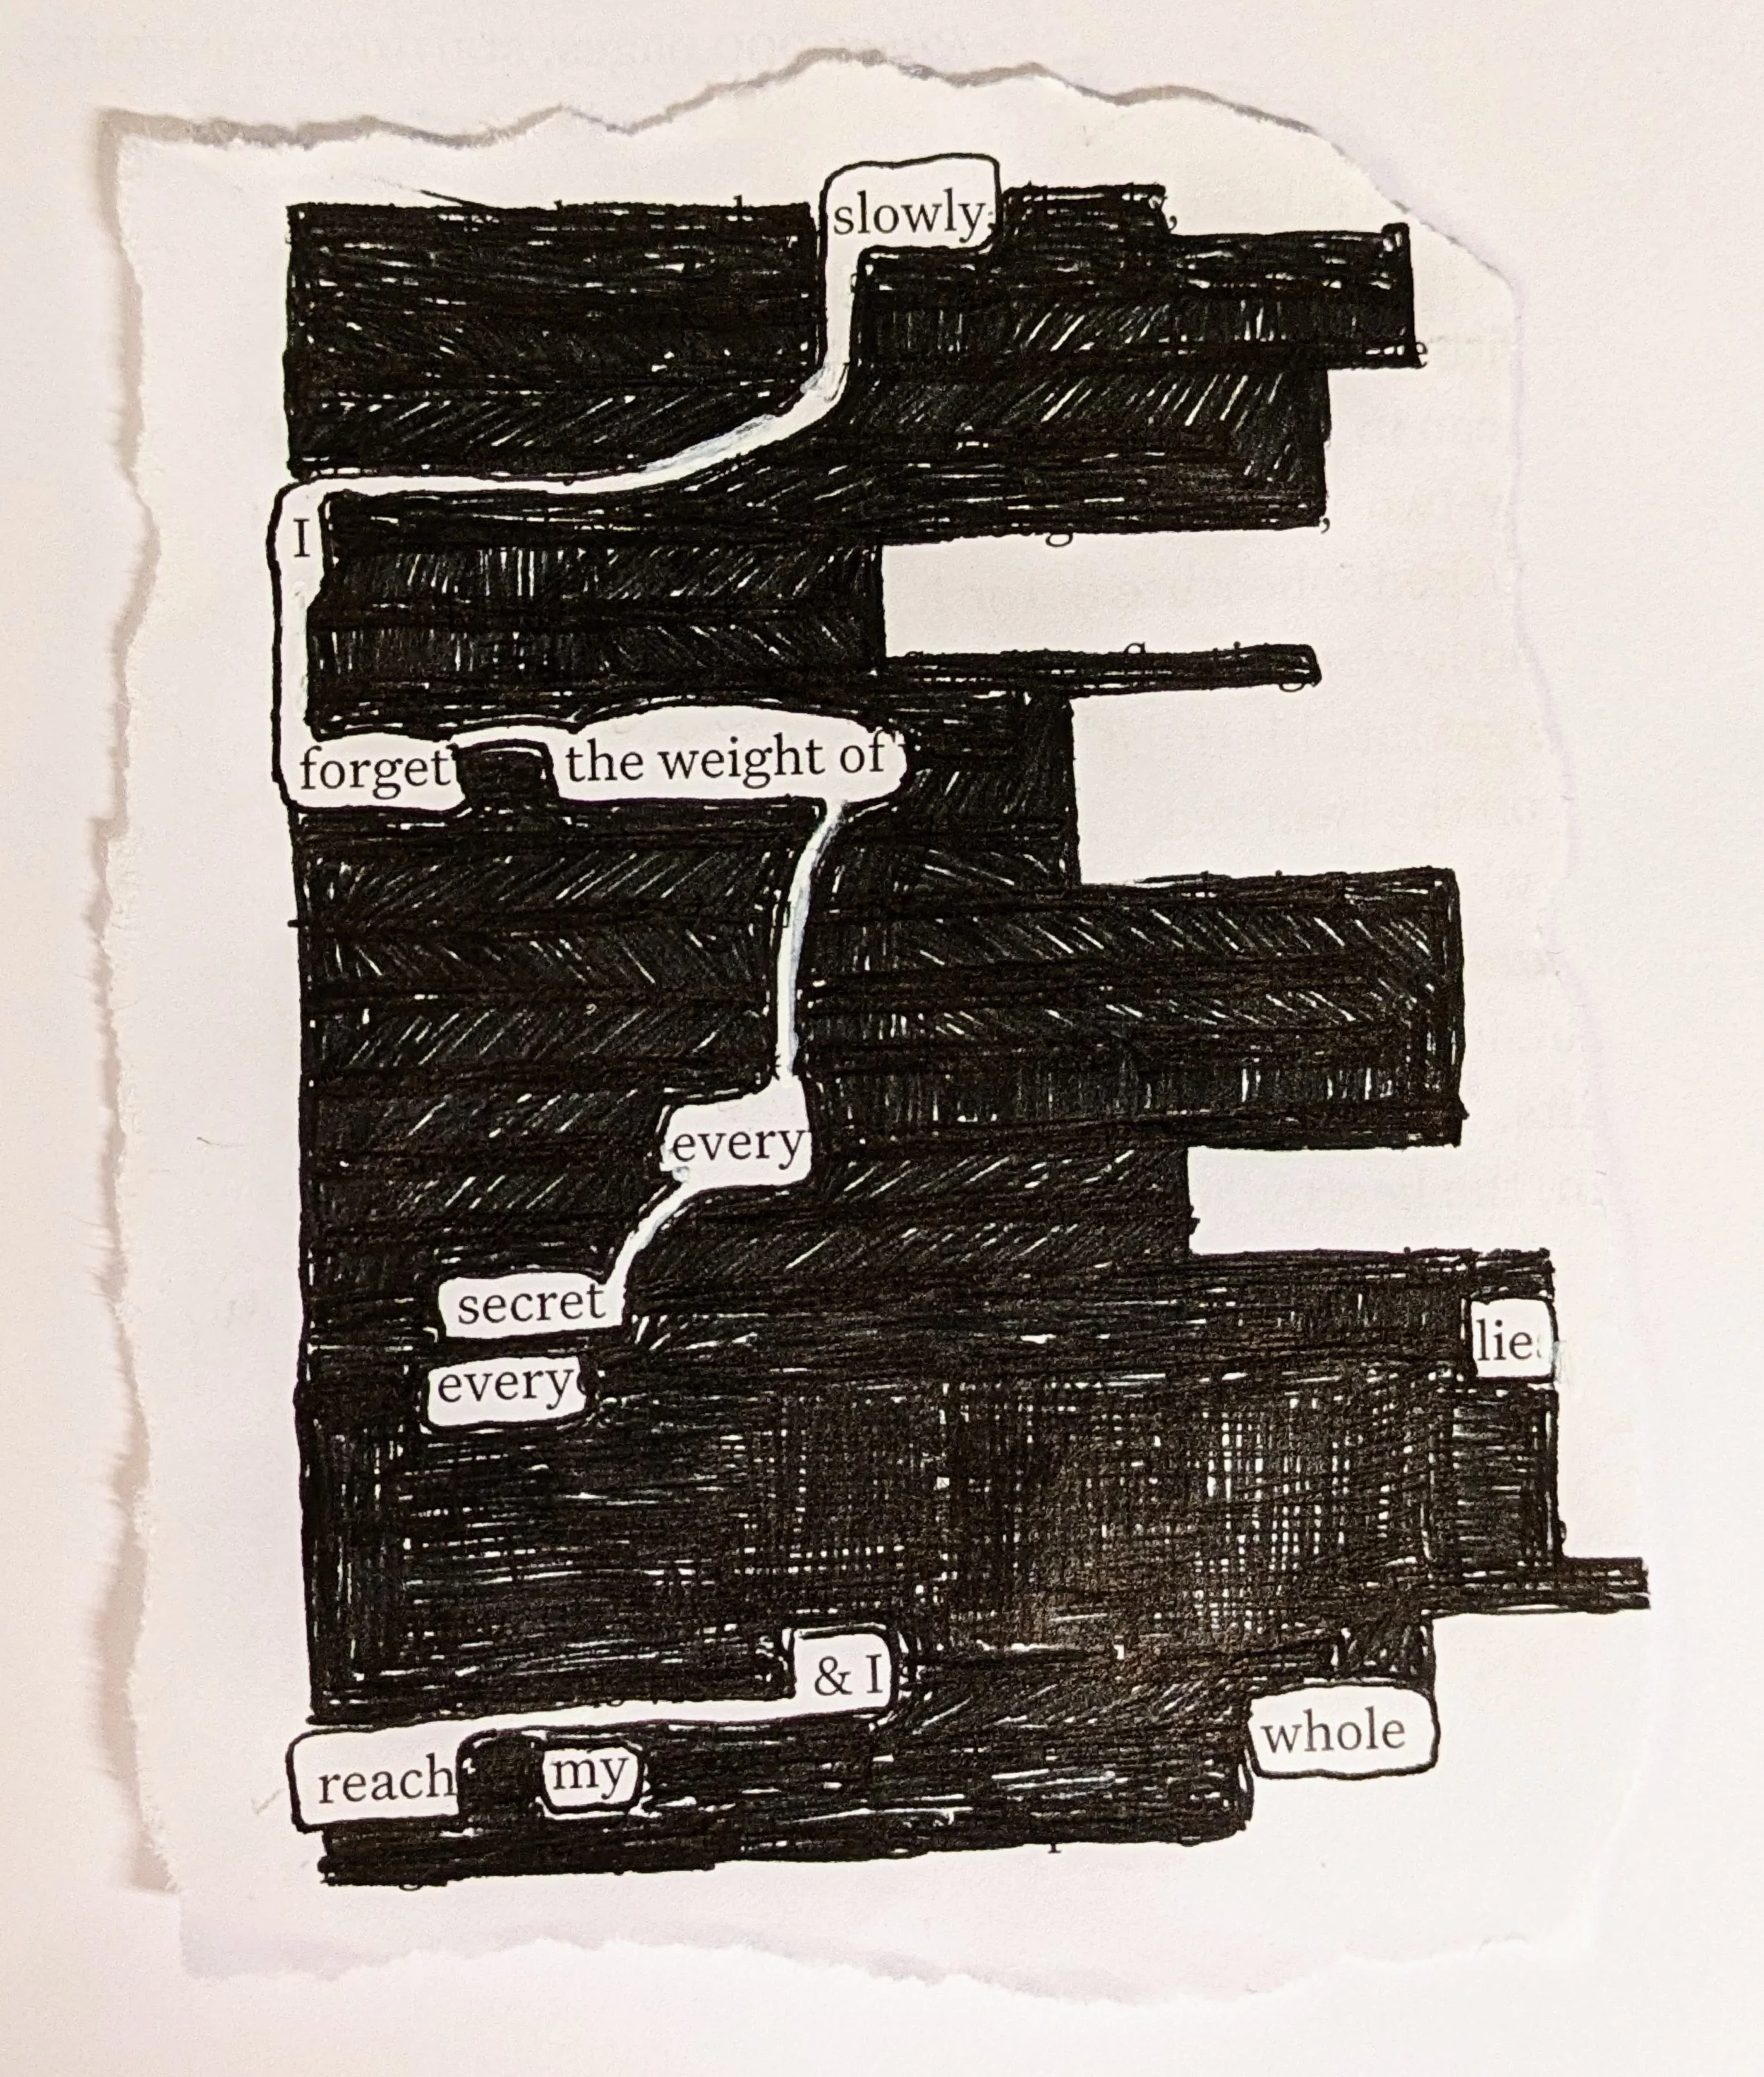 slowly
I
forget the weight of
every
secret
lie
every
& I
whole
reach my